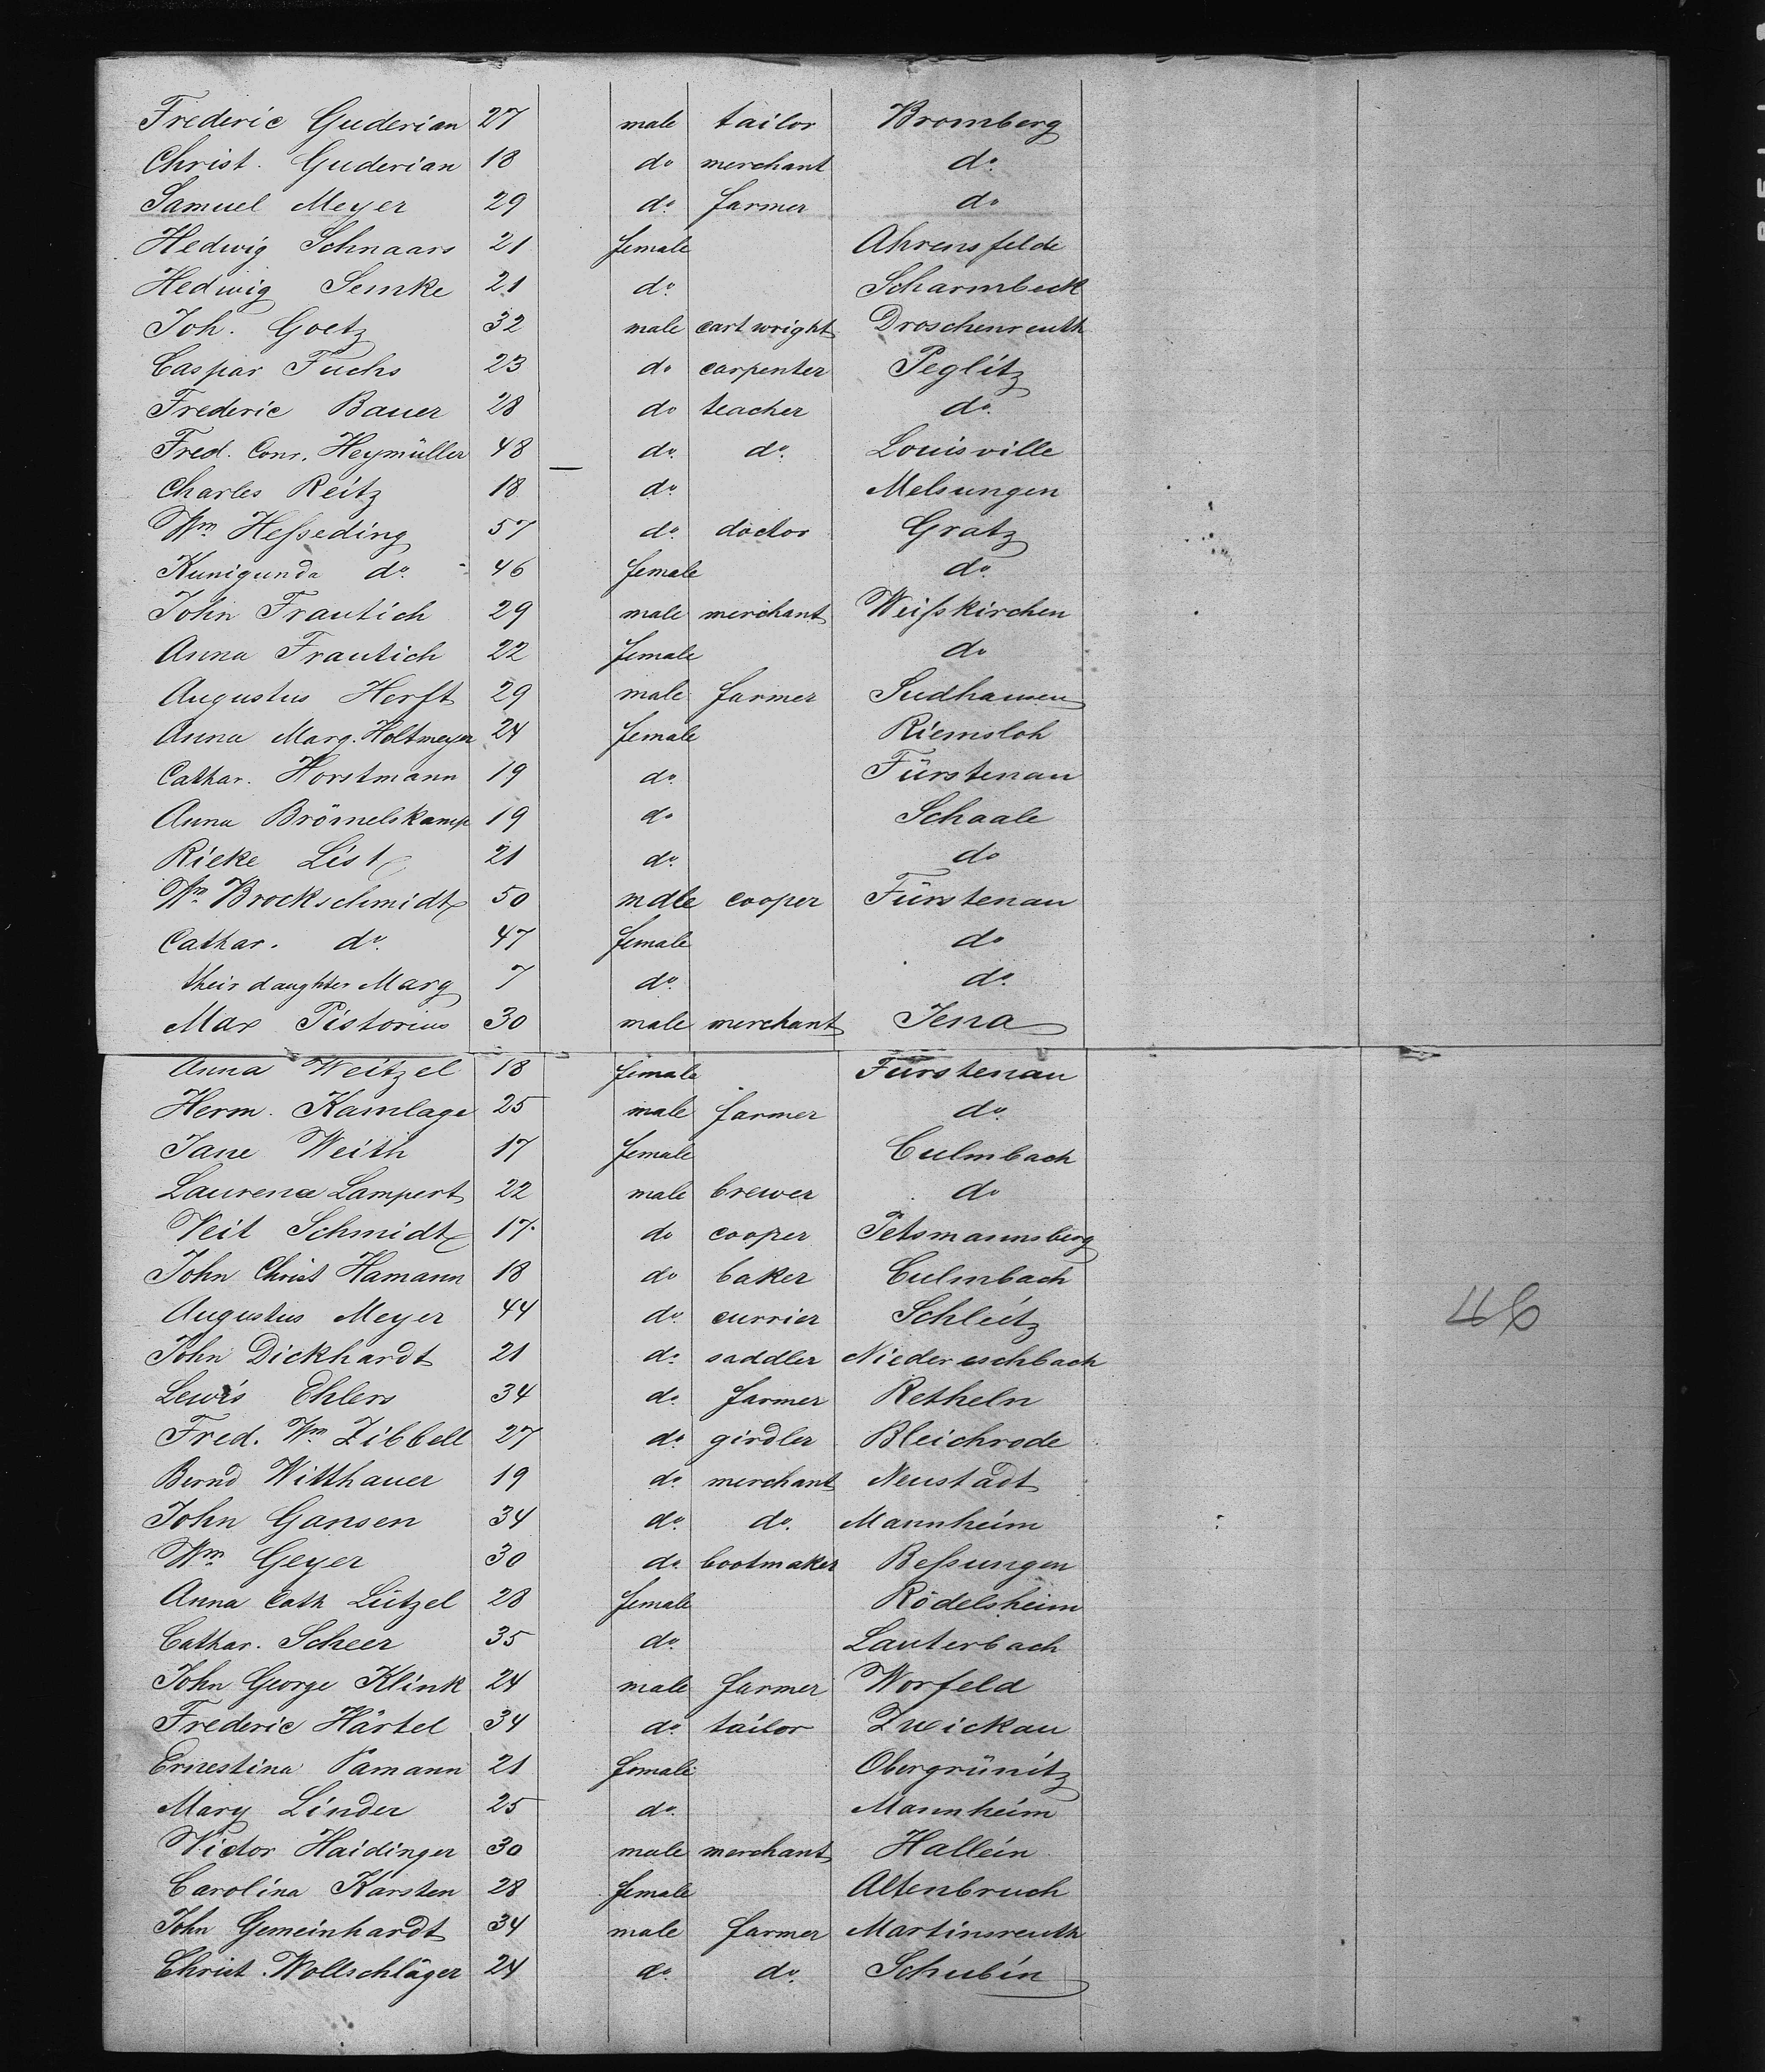 Frederic Guderian 27 male tailor Bromberg
Christ. Guderian 18 do merchant do.
Samuel Meyer 29 do. farmer do
Hedwig Schnaars 21 female Ahrensfelde
Hedwig Semke 21 do. Scharmbeck
Joh. Goetz 32 male cartwright Droschenreuth
Caspar Fuchs 23 do carpenter Peglitz
Frederic Bauer 28 do teacher do.
Fred. Conr. Heymüller 48 do. do. Louisville
Charles Reitz 18 do. Melsungen
Wm Heſseding 57 do. doctor Gratz
Kunigunda do. 46 female do.
John Frautich 29 male merchant Weiſskirchen
Anna Frautich 22 female do
Augustus Herft 29 male farmer Sudhausen
Anna Marg. Holtmeyer 24 female Riemsloh
Cathar. Horstmann 19 do. Fürstenau
Anna Brömelskamp 19 do Schaale
Rieke List 21 do. do
Wm Brockschmidt 50 male cooper Fürstenau
Cathar. do. 47 female do
their daughter Marg 7 do. do.
Max Pistorius 30 male merchant Jena
Anna Weitzel 18 female Fürstenau
Herm. Kamlage 25 male farmer do.
Jane Weith 17 female Culmbach
Laurence Lampert 22 male brewer do
Veit Schmidt 17 do cooper Petsmannsberg
John Christ Hamann 18 do baker Culmbach
Augustus Meyer 44 do. currier Schleitz
John Dickhardt 21 do. saddler Niedereschbach
Lewis Ehlers 34 do. farmer Retheln
Fred. Wm Zibbell 27 do. girdler Bleichrode
Bernd Witthauer 19 do. merchant Neustadt
John Gansen 34 do. do. Mannheim
Wm Geyer 30 do. bootmaker Beſsungen
Anna Cath Lützel 28 female Rödelsheim
Cathar. Scheer 35 do. Lauterbach
John George Klink 24 male farmer Worfeld
Frederic Härtel 34 do. tailor Zwickau
Ernestina Pamann 21 female Obergrünitz
Mary Linder 25 do. Mannheim
Victor Haidinger 30 male merchant Hallein
Carolina Karsten 28 female Altenbruch
John Gemeinhardt 34 male farmer Martinsreuth
Christ. Wollschläger 24 do. do. Schubin
46